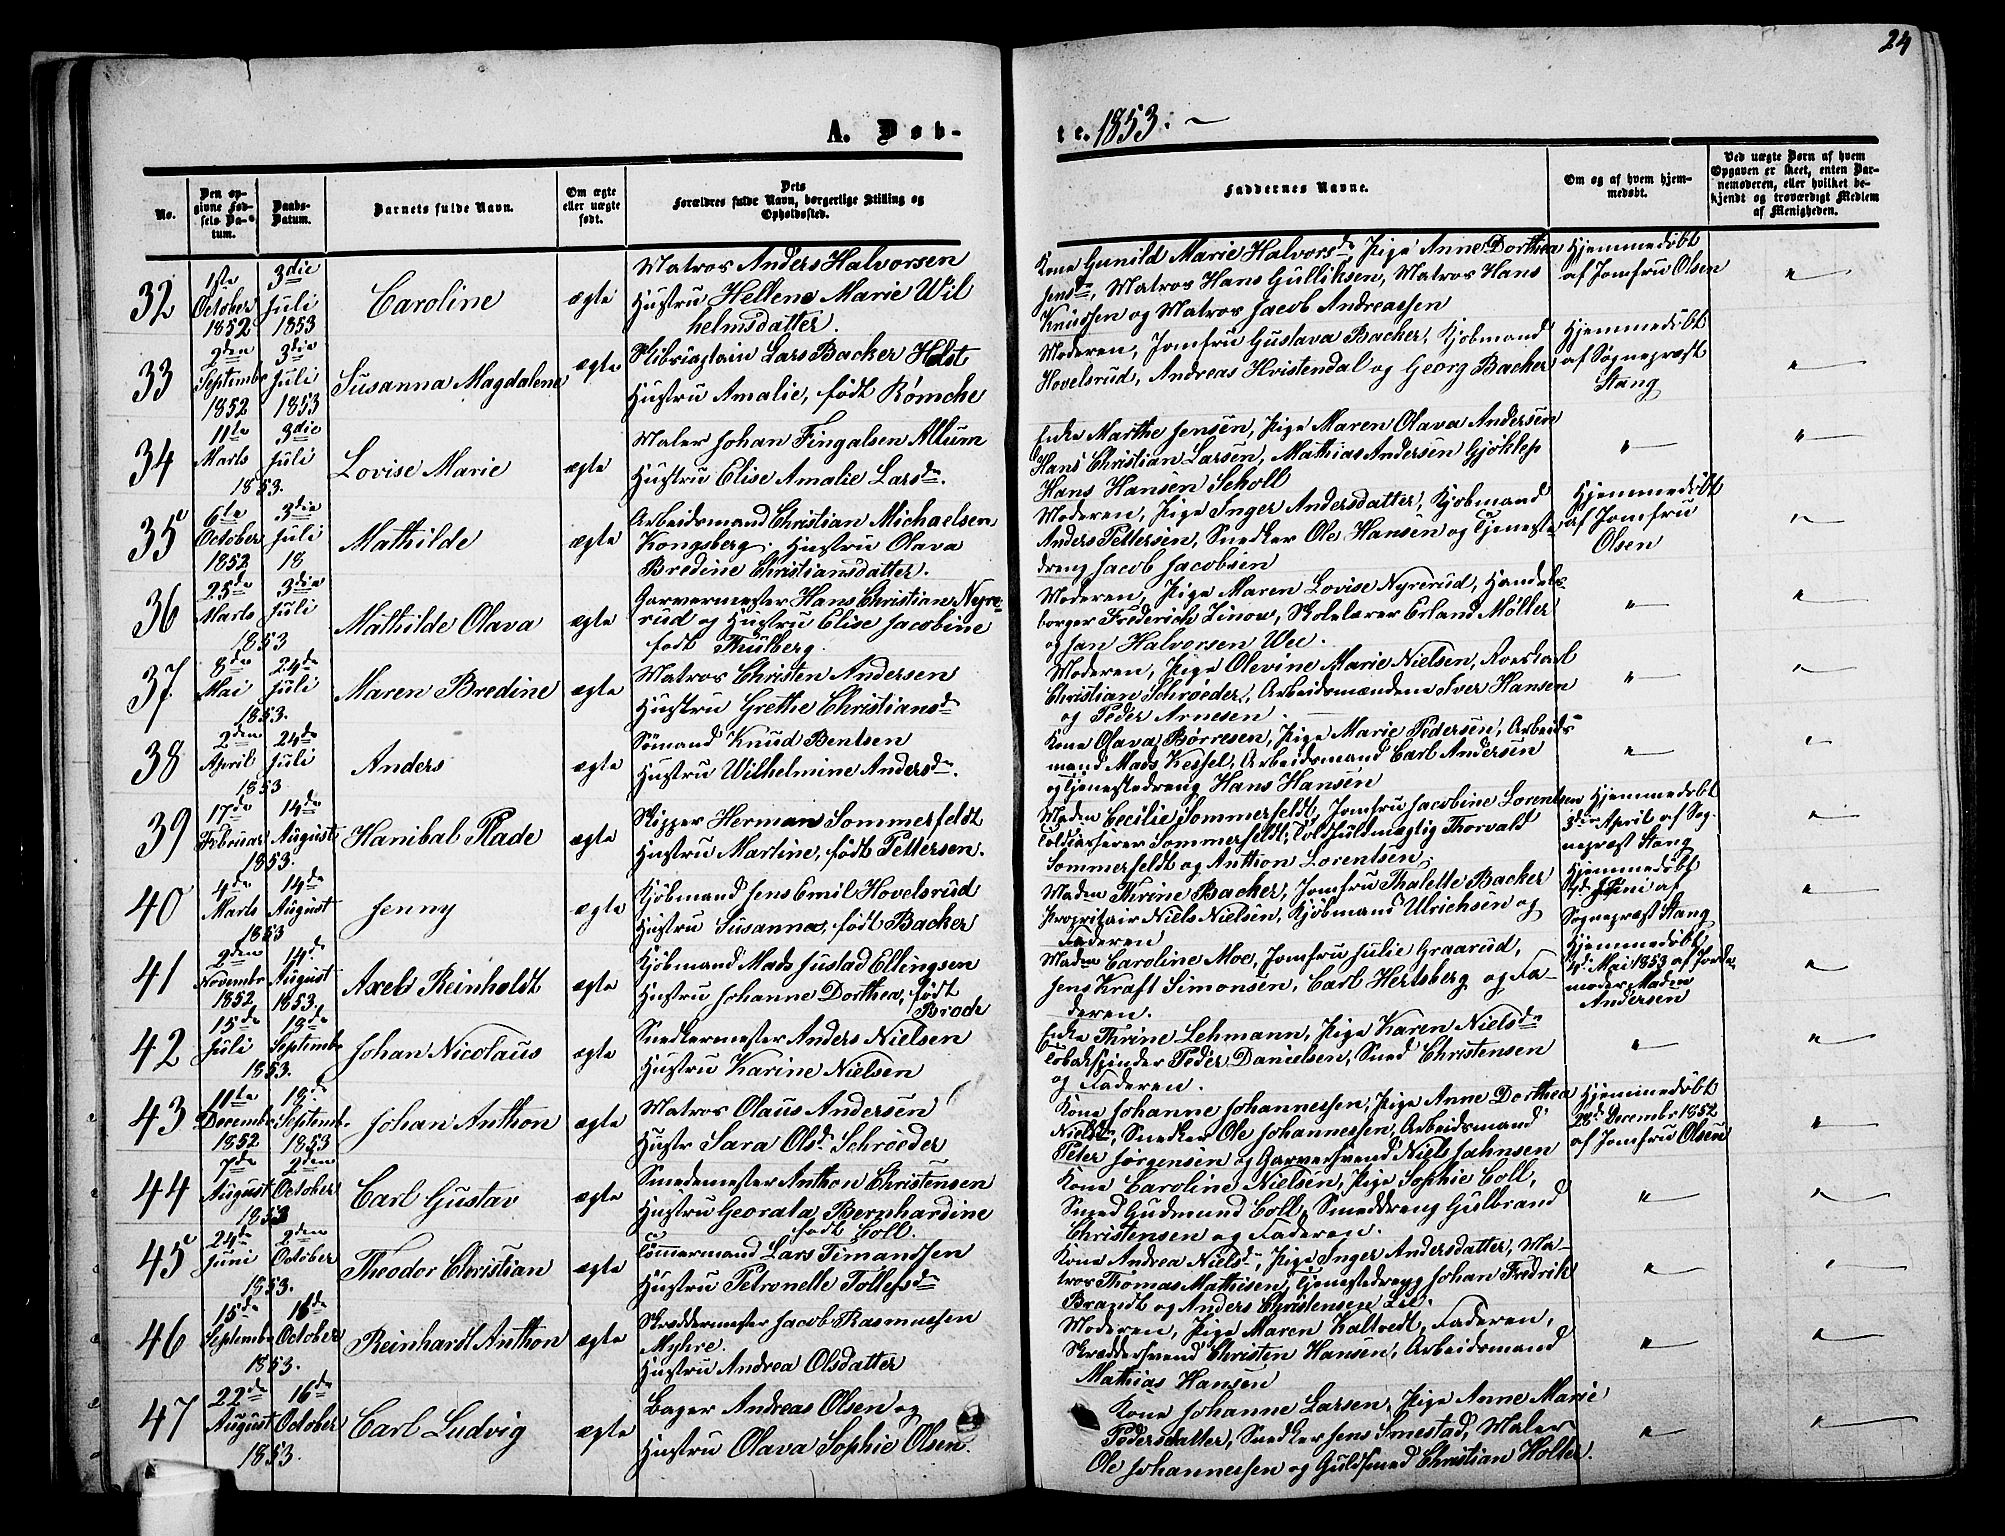 24
A. Døb-
te. 1853. ~
No.
Den op-
givne Fød-
sels-Da-
tum.
Daabs-
Datum.
Barnets fulde Navn.
Om ægte
eller uægte
født.
Dets
Forældres fulde Navn, borgerlige Stilling og
Opholdssted.
Faddernes Navne.
Om og af hvem hjem-
medøbt.
Ved uægte Børn af hvem
Opgaven er skeet, enten Bar-
nemoderen, eller hvilket be-
kjendt og troværdigt Medlem
af Menigheden.
32
1ste
October
1852
3die
Juli
1853
Caroline
ægte
Matros Anders Halvorsen
Hustru Hellene Marie Wil
helmsdatter.
Kone Gunild Marie Halvorsdr, Pige Anne Dorthea
Jensdr, Matros Hans Gulliksen, Matros Hans
Knudsen og Matros Jacob Andreassen
Hjemmedøbt
af Jomfru Olsen
"
33
2den
Septembr
1852
3die
Juli
1853
Susanna Magdalene
ægte
Skibscaptain Lars Backer Holst
Hustru Amalie, født Rømche
Moderen, Jomfru Gustava Backer, Kjøbmand
Hovelsrud, Andreas Hvistendal og Georg Backer
Hjemmedøbt
af Sognepræst
Stang
"
34
11te
Marts
3die
Juli
1853.
Lovise Marie
ægte
Maler Johan Fingalsen Allum
Hustru Elise Amalie Larsdr.
Enke Marthe Jensen, Pige Maren Olava Andersen
Hans Christian Larsen, Mathias Andersen Gjøklep
Hans Hansen Scholl
"
"
35
6te
October
1852
3die
Juli
18
Mathilde
ægte
Arbeidsmand Christian Michaelsen
Kongsberg. Hustru Olava
Bredine Christiansdatter.
Moderen, Pige Inger Andersdatter, Kjøbmand
Anders Pettersen, Snedker Ole Hansen og Tjeneste
dreng Jacob Jacobsen
Hjemmedøbt
af Jomfru
Olsen
"
36
25de
Marts
3die
Juli
1853
Mathilde Olava
ægte
Garvermester Hans Christian Nyre-
rud og Hustru Elise Jacobine
født Thulberg.
Moderen, Pige Maren Lovise Nyrerud, Handels
borger Frederich Linow, Skolelærer Erland Møller
og Jan Halvorsen Wee.
"
"
37
8de
Mai
24de
Juli
1853.
Maren Bredine
ægte
Matros Christen Andersen
Hustru Grethe Christiansdr
Moderen, Pige Olevine Marie Nielsen, Roerkarl
Christian Schrøeder, Arbeidsmændene Iver Hansen
og Peder Arnesen.
"
"
38
2den
April
24de
Juli
1853
Anders
ægte
Sømand Knud Bentsen
Hustru Wilhelmine Andersdr.
Kone Olava Børresen, Pige Marie Pedersen, Arbeids
mand Mads Kessel, Arbeidsmand Carl Andersen
og Tjenestedreng Hans Hansen
"
"
39
17de
Februar
14de
August
1853.
Hanibal Plade
ægte
Skipper Herman Sommerfeldt
Hustru Martine, født Pettersen.
Madm Cecilie Sommerfeldt, Jomfru Jacobine Lorentsen
Toldcasserer Sommerfeldt, Toldfuldmægtig Thorvald
Sommerfeldt og Anthon Lorentsen,
Hjemmedøbt
3die April af Sog-
nepræst Stang
"
40
4de
Marts
14de
August
1853
Jenny
ægte
Kjøbmand Jens Emil Hovelsrud
Hustru Susanna, født Backer
Madm Thrine Backer, Jomfru Thalette Backer
Proprietair Niels Nielsen, Kjøbmand Ulrichsen og
Faderen
Hjemmedøbt
Juni af
Sognepræst Stang
"
41
2den
Novembr
1852
14de
August
1853.
Axel Reinholdt
ægte
Kjøbmand Mads Justad Ellingsen
Hustru Johanne Dorthea, født
Brode
Madm Caroline Moe, Jomfru Julie Graarud,
Jens Kraft Simonsen, Carl Hertsberg og Fa-
deren.
Hjemmedøbt
Mai 1853 af Jorde
moder Madm
Andersen
"
42
15de
Juli
18de
Septembr
1853.
Johan Nicolaus
ægte
Snedkermester Anders Nielsen
Hustru Karine Nielsen
Enke Thrine Lehmann, Pige Karen Nielsdr
Tobakspinder Peder Danielsen, Smed Christensen
og Faderen.
"
"
43
11te
Decembr
1852
18de
Septembr.
1853
Johan Anthon
ægte
Matros Olaus Andersen
Hustr Sara Olsdr Schrøeder
Kone Johanne Johannessen, Pige Anne Dorthea
Nielsdr, Snedker Ole Johannessen, Arbeidsmand
Peter Jørgensen og Garversvend Niels Jahnsen
Hjemmedøbt
28de Decembr 1852
af Jomfru Olsen
"
44
7de
August
2den
October
1853
Carl Gustav
ægte
Smedemester Anthon Christensen
Hustru Georata Bernhardine
født Coll.
Kone Caroline Nielsen, Pige Sophie Coll,
Smed Gudmund Coll, Smeddreng Gulbrand
Christensen og Faderen.
"
"
45
24de
Juni
2den
October
1853.
Theodor Christian
ægte
Tømmermand Lars Timandsen
Hustru Petronelle Tollefsdr
Kone Andrea Nielsdr, Pige Inger Andersdatter, Ma-
tros Thomas Mathisen, Tjenestedreng Johan Fredrik
Brandt og Anders Christensen Lie.
"
"
46
15de
Septembr
16de
October
1853.
Reinhardt Anthon
ægte
Skræddermester Jacob Rasmussen
Myhre.
Hustru Andrea Olsdatter
Moderen, Pige Maren Kaltvedt, Faderen,
Skræddersvend Christen Hansen, Arbeidsmand
Mathias Hansen
"
"
47
22de
August
16de
October
1853.
Carl Ludvig
ægte
Bager Andreas Olsen og
Hustru Olava Sophie Olsen.
Kone Johanne Larsen, Pige Anne Marie
Pedersdatter, Snedker Jens Smestad, Maler
Ole Johannessen og Guldsmed Christian Holter.
"
"